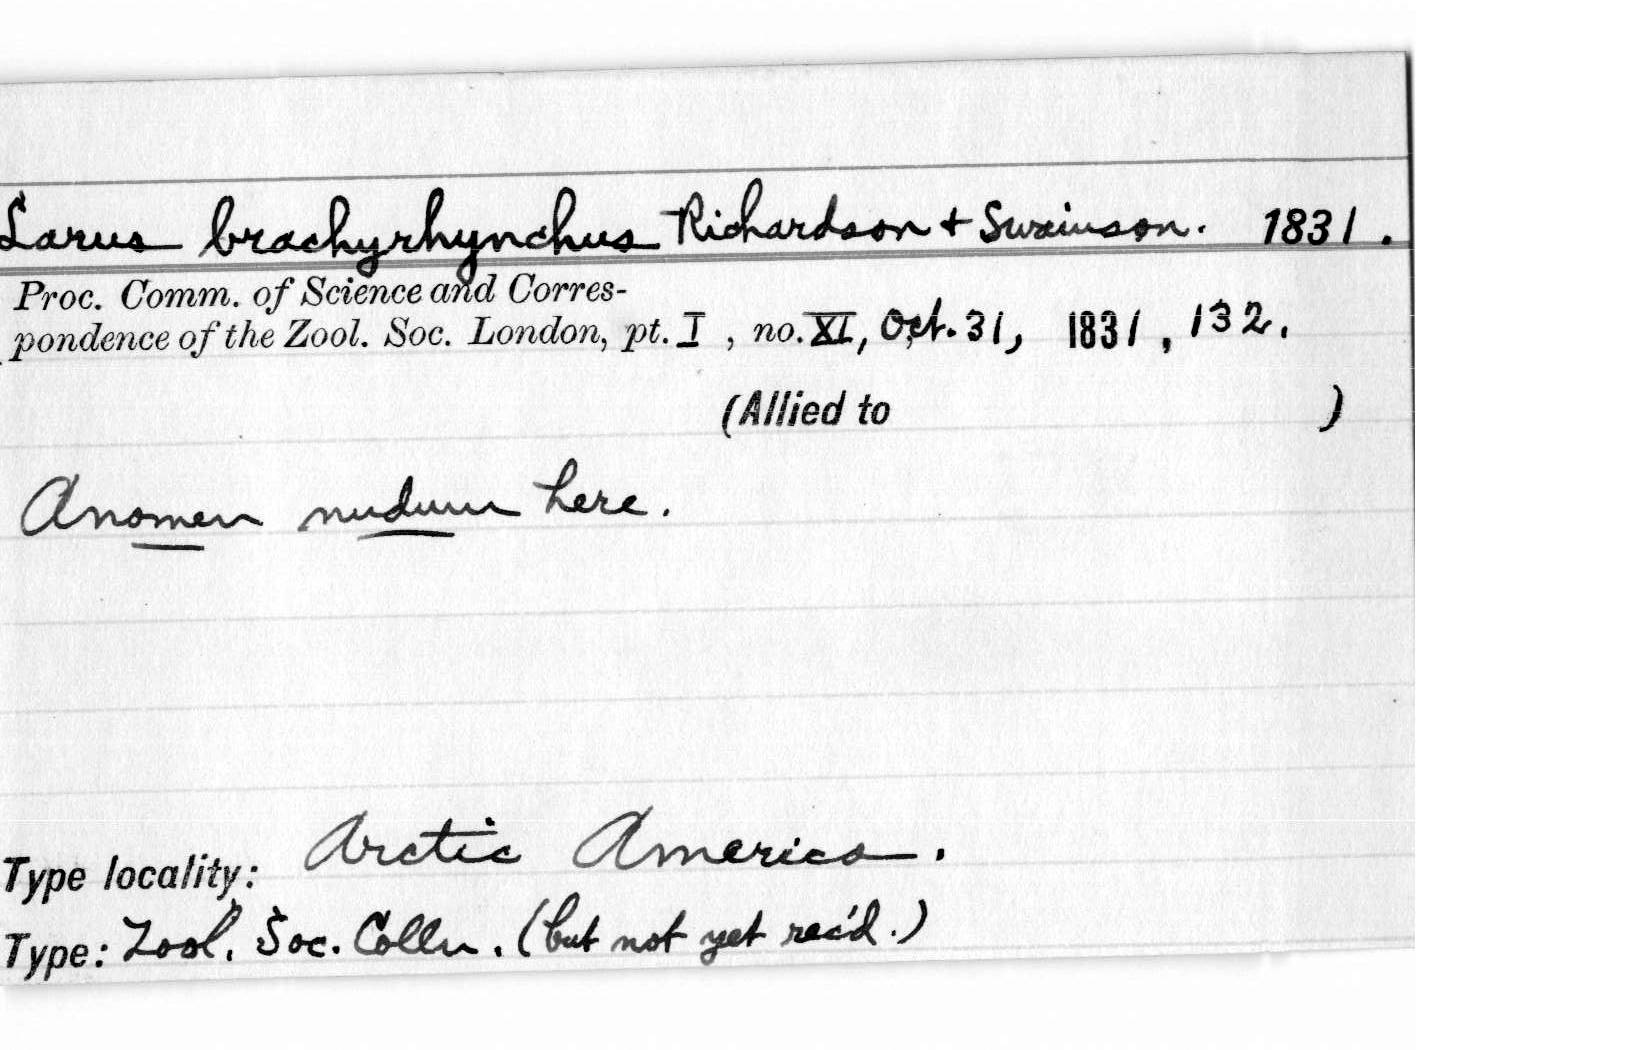 Larus brachyrhynchus Richardson + Swainson. 1831.
Proc. Comm. of Science and Corres-
pondence of the Zool. Soc. London, pt. I, no. XI, Oct. 31, 1831, 132.
(Allied to )
A nomen nudum here.
Type locality: Arctic America.
Type: Zool. Soc. Colln. (but not yet rec'd.)